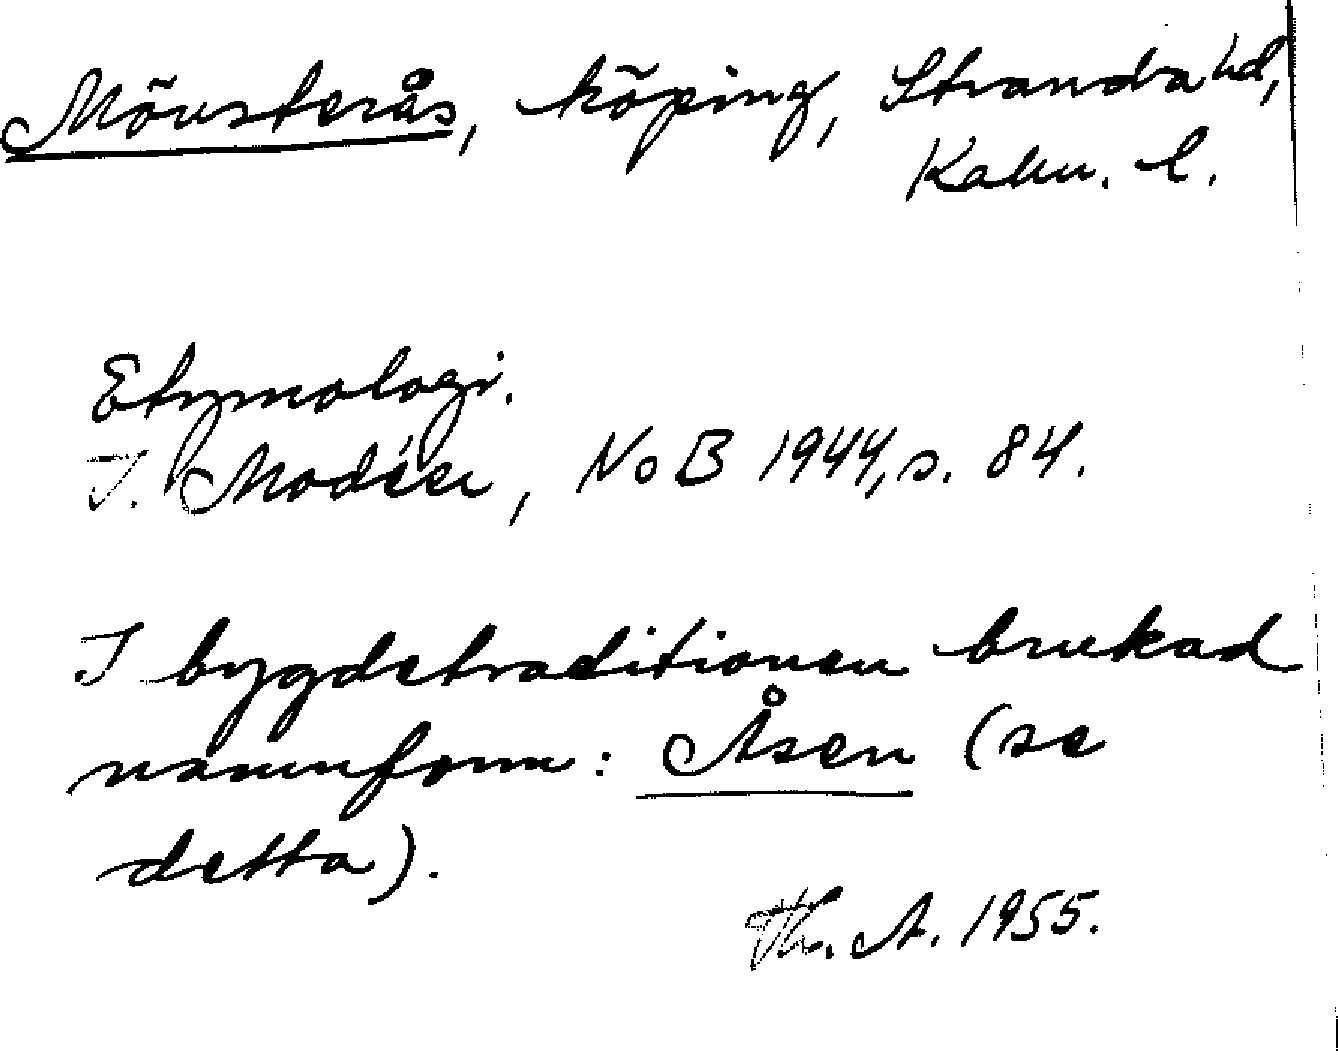 Mönsterås, köping, Stranda hd,
Kalm. l.
Etymologi.
I. Modéer, NoB 1944, s. 84.
I bygdetraditionen brukad
namnform: Åsen (se
detta).
Th. A. 1955.